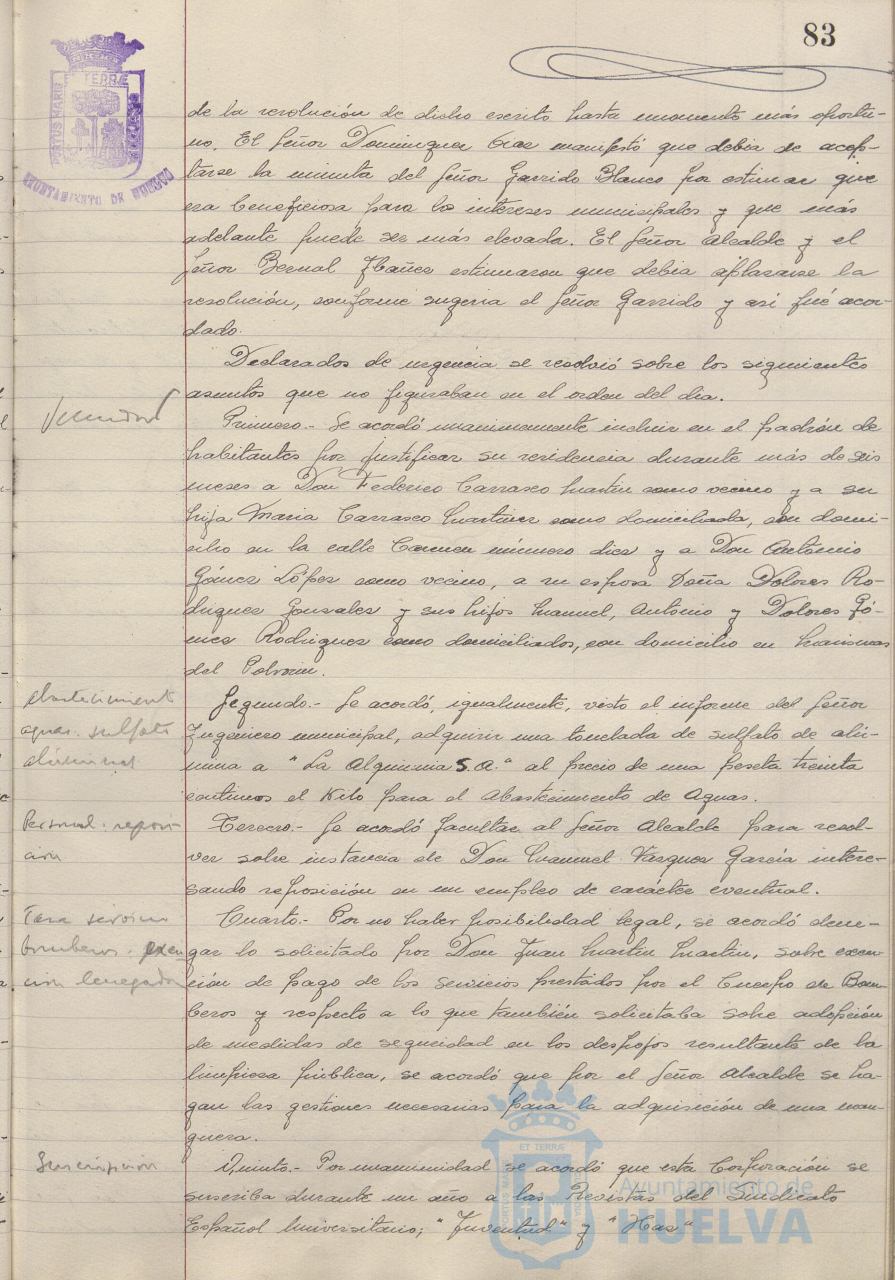 83
PORTUS MARIS
ET TERRÆ
AYUNTAMIENTO DE HUELVA
de la resolución de dicho escrito hasta momento más oportu-
no. El Señor Dominguez manifestó que debia de acep-
tarse la minuta del Señor Garrido Blanco por estimar que
era beneficiosa para los intereses municipales y que más
adelante puede ser más elevada. El Señor Alcalde y el
Señor Bernal Ybañez estimaron que debia aplazarse la
resolución, conforme sugeria el Señor Garrido y asi fué acor-
dado.
Declarados de urgencia se resolvió sobre los siguientes
asuntos que no figuraban en el orden del dia.
Primero.- Se acordó unanimemente incluir en el padrón de
habitantes por justificar su residencia durante más de seis
meses a Don Federico Carrasco Martin como vecino y a su
hija Maria Carrasco Martinez como domiciliada, con domi-
cilio en la calle Carmen número diez y a Don Antonio
Gómez López como vecino, a su esposa Doña Dolores Ro-
driguez Gonzalez y sus hijos Manuel, Antonio y Dolores Gó-
mez Rodriguez como domiciliados, con domicilio en Marismas
del Polvorin.
Abastecimiento
aguas. sulfato
alúmina
Segundo.- Se acordó, igualmente, visto el informe del Señor
Ingeniero municipal, adquirir una tonelada de sulfato de alú-
mina a "La Alquimia S.A." al precio de una peseta treinta
centimos el Kilo para el Abastecimiento de Aguas.
Personal. reposi-
ción
Tercero.- Se acordó facultar al Señor Alcalde para resol-
ver sobre instancia de Don Manuel Vazquez García intere-
sando reposición en un empleo de carácter eventual.
Tasa servicio
bomberos. exen-
ción denegada
Cuarto.- Por no haber posibilidad legal, se acordó dene-
gar lo solicitado por Don Juan Martin Martin, sobre exen-
ción de pago de los servicios prestados por el Cuerpo de Bom-
beros y respecto a lo que también solicitaba sobre adopción
de medidas de seguridad en los despojos resultante de la
limpieza pública, se acordó que por el Señor Alcalde se ha-
gan las gestiones necesarias para la adquisición de una man-
guera.
Suscripción
Quinto.- Por unanimidad se acordó que esta Corporación se
suscriba durante un año a las Revistas del Sindicato
Español Universitario; "Juventud" y "Haz"
ET TERRÆ
PORTUS MARIS
Ayuntamiento de
HUELVA